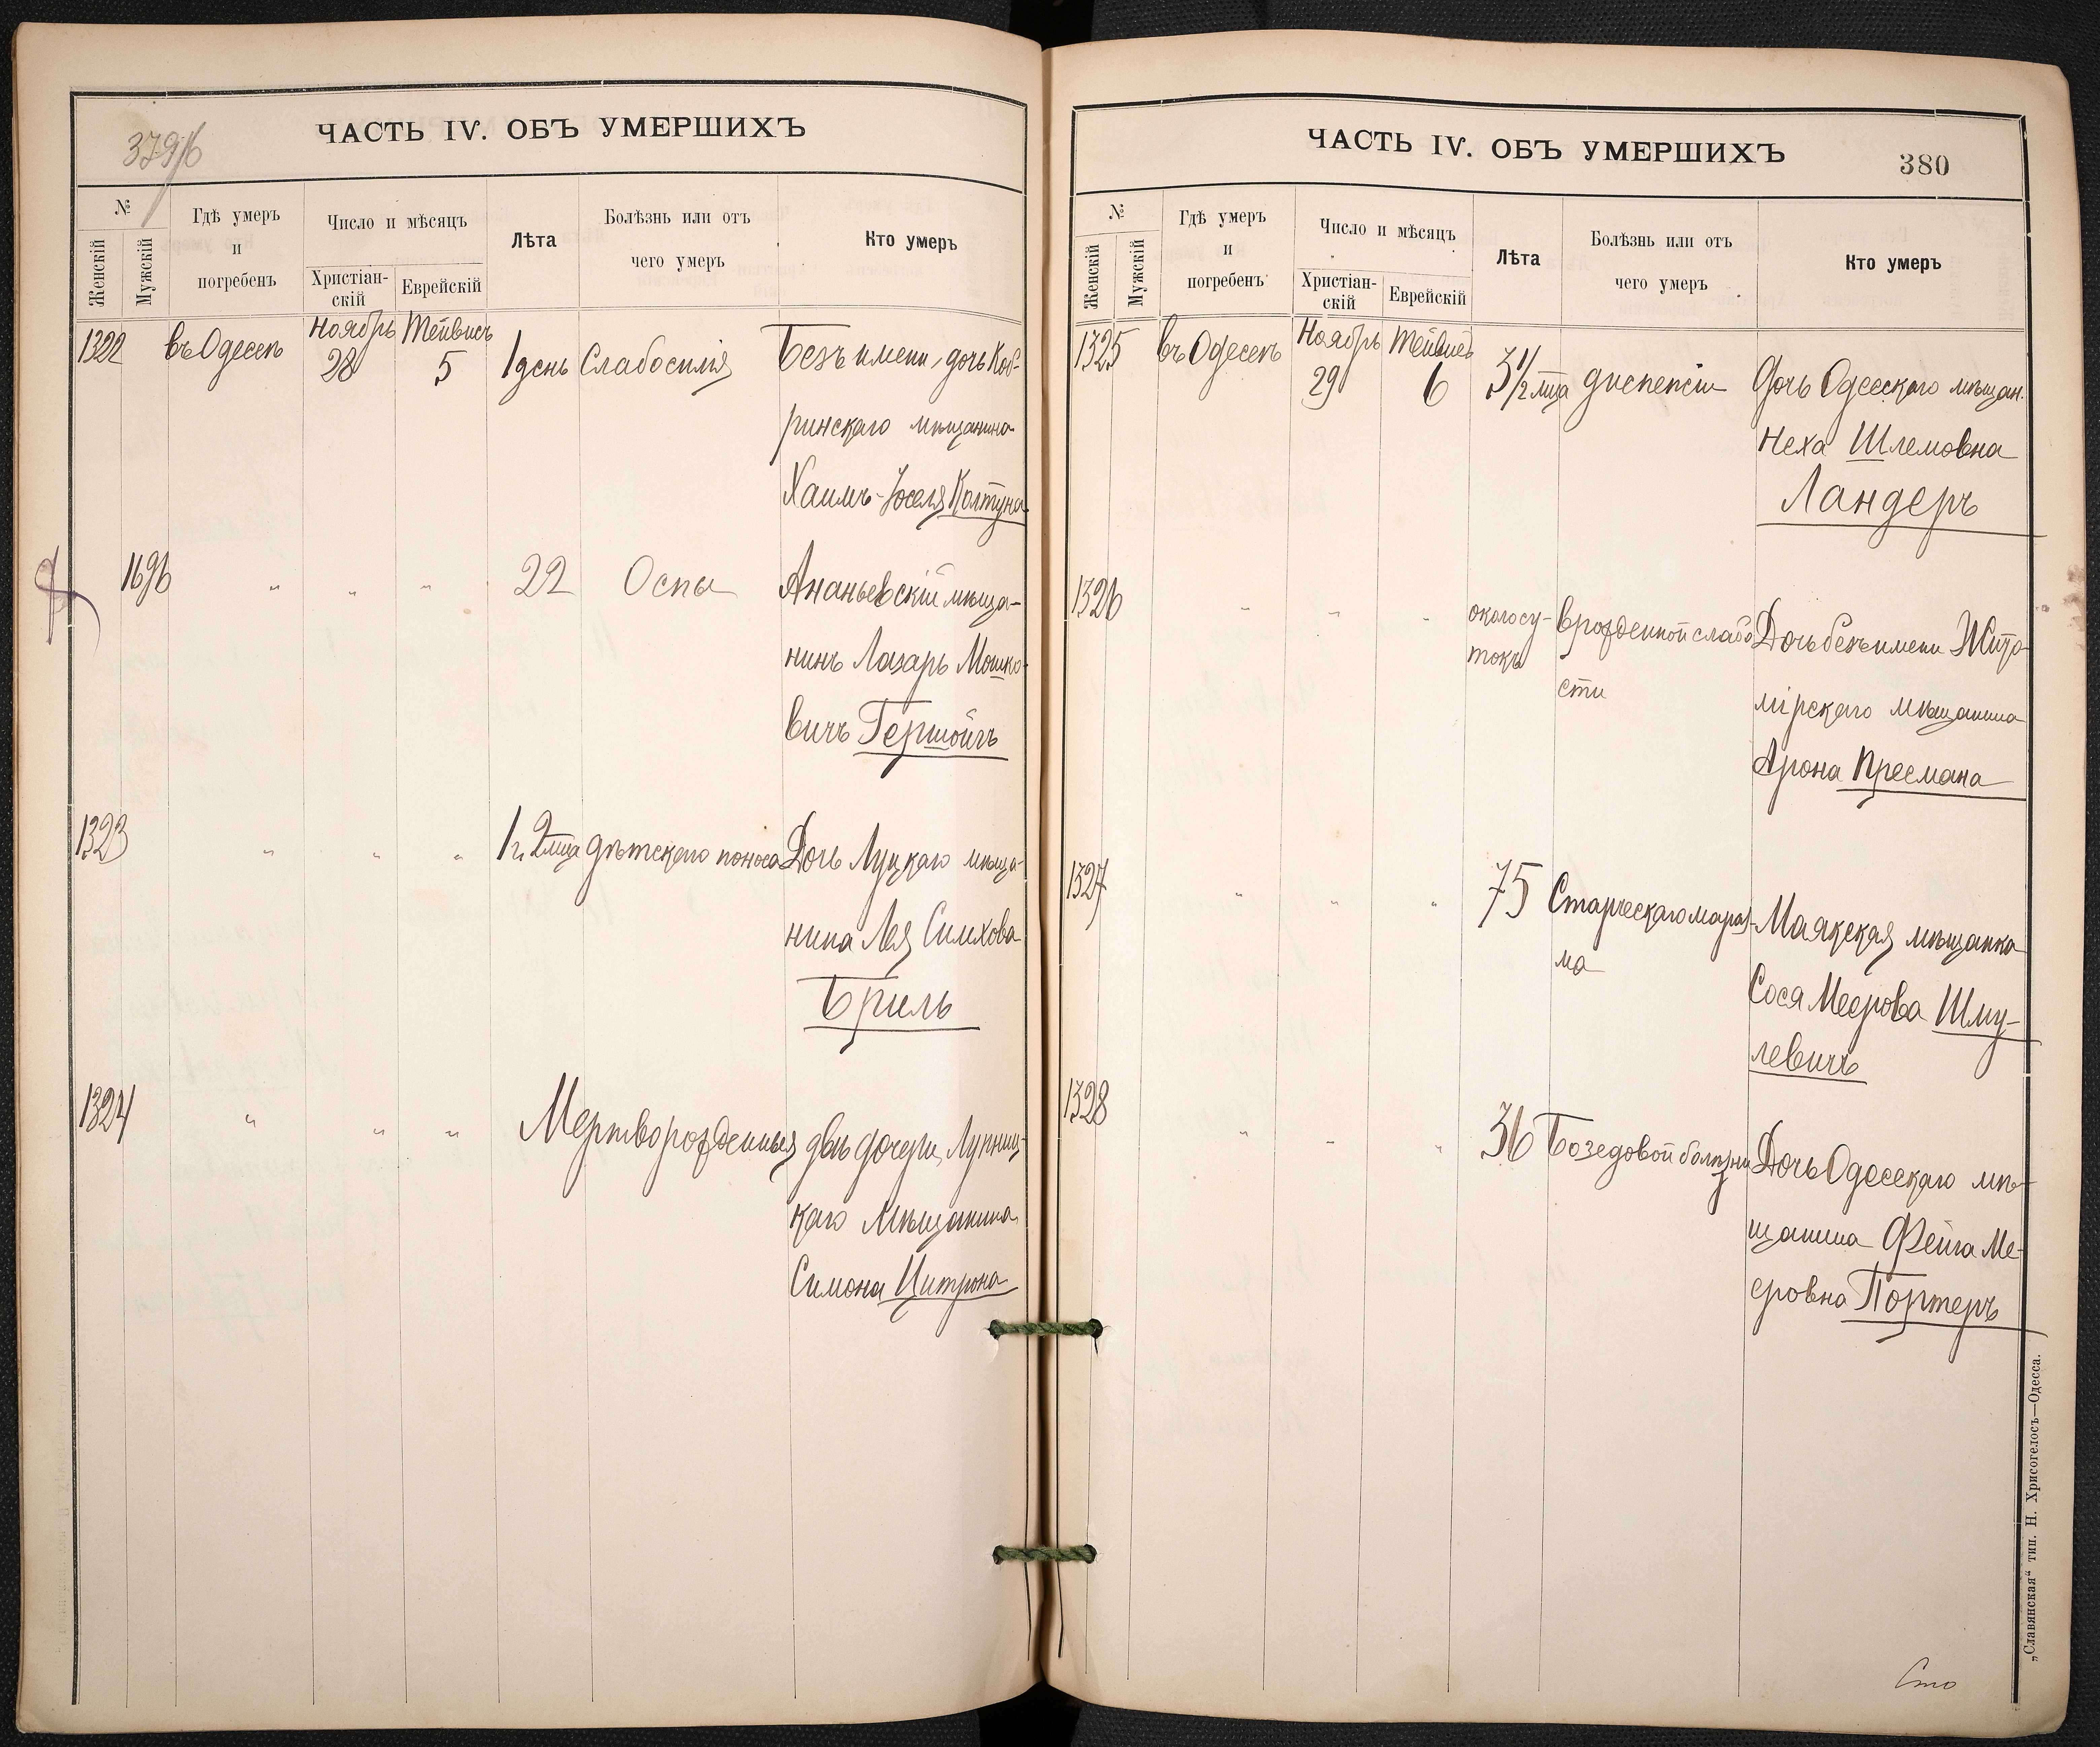 379/б
ЧАСТЬ IV. ОБЪ УМЕРШИХЪ
№
Женскій
Мужскій
Гдѣ умеръ
и
погребенъ
Число и мѣсяцъ
Христіан-
скій
Еврейскій
Лѣта
Болѣзнь или отъ
чего умеръ
Кто умеръ
1322 въ Одессѣ Ноябрь 28 Тейвисъ 5 1 день Слабосилія Безъ имени, дочь Коб-
ринскаго мѣщанина
Хаимъ-Іоселя Колтуна
1696 " " " 22 Оспы Ананьевскій мѣща-
нинъ Лазарь Мошко-
вичъ Герш
1323 " " " 1 г. 2 мца дѣтскаго поноса Дочь Луцкаго мѣща-
нина Лея Симхова
Бриль
1324 " " " Мертворожденныя двѣ дочери
каго мѣщанина
Симона Цитрона
ЧАСТЬ IV. ОБЪ УМЕРШИХЪ
380
№
Женскій
Мужскій
Гдѣ умеръ
и
погребенъ
Число и мѣсяцъ
Христіан-
скій
Еврейскій
Лѣта
Болѣзнь или отъ
чего умеръ
Кто умеръ
1325 въ Одессѣ Ноябрь 29 Тейвисъ 6 3 1/2 мца диспепсіи Дочь Одесскаго мѣщан.
Неха Шлемовна
Ландеръ
1326 " " " около су- врожденной слабо Дочь безъ имени Жито-
токъ сти мірскаго мѣщанина
Арона Пресмана
1327 " " " 75 Старческаго мараз- Маякская мѣщанка
ма Сося Меерова Шму-
левичъ
1328 " " " 36 Бозедовой болѣзни Дочь Одесскаго мѣ-
щанина Фейга Ме-
еровна Портеръ
Сто
„Славянская“ тип. Н. Хрисогелосъ—Одесса.